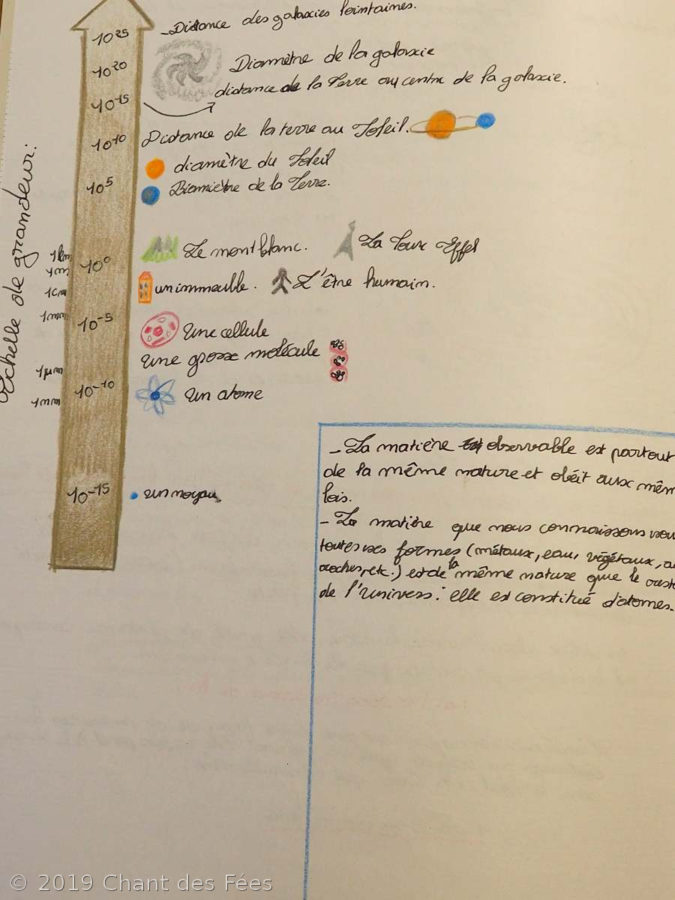 Echelle de grandeur:
10²⁵ - Distance des galaxies lointaines.
10²⁰ Diamètre de la galaxie
distance de la Terre au centre de la galaxie.
10⁻¹⁵
10¹⁰ Distance de la terre au Soleil.
diamètre du Soleil
10⁵ Diamètre de la Terre.
1km
Le mont blanc. La Tour Eiffel
10⁰
1m
1cm un immeuble. L'être humain.
1mm
10⁻⁵ Une cellule
une grosse molécule
1µm
10⁻¹⁰ Un atome
1nm
10⁻¹⁵ un noyau
- La matière observable est partout
de la même nature et obéit aux mêm
lois.
- La matière que nous connaissons sous
toutes ses formes (métaux, eau, végétaux,
roches, etc.) est de la même nature que le
de l'Univers: elle est constitué d'atomes.
© 2019 Chant des Fées